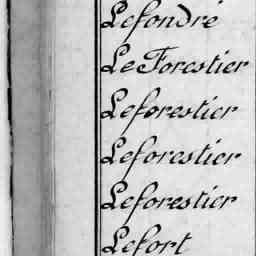 Lefondré
Le Forestier
Leforestier
Leforestier
Leforestier
Lefort